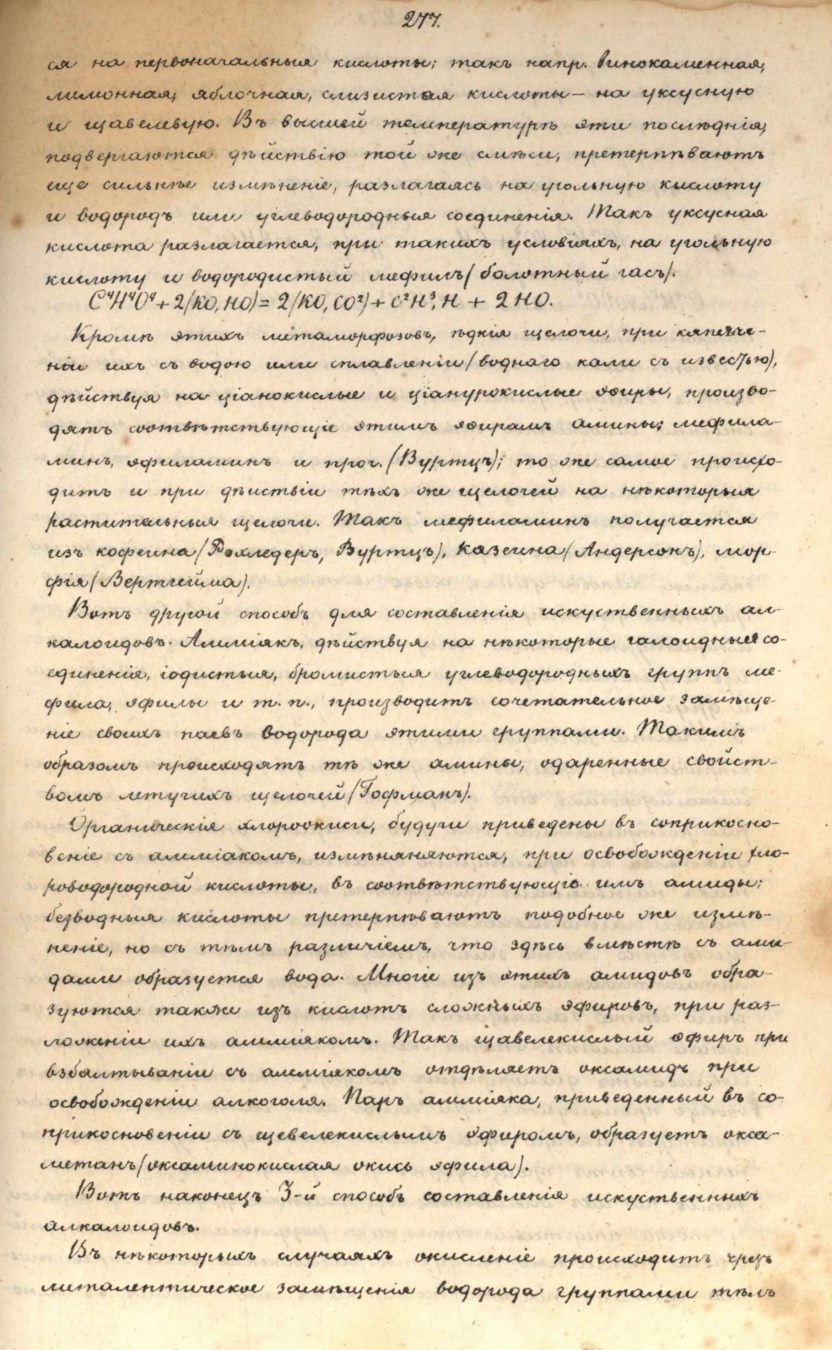 277.
ся на первоначальныя кислоты; такъ напр. Винокаменная,
лимонная, яблочная, слизистая кислоты — на уксусную
и щавелевую. Въ высшей температурѣ эти послѣднія,
подвергаются дѣйствію той же смѣси, претерпѣваютъ
еще сильнѣе измѣненіе, разлагаясь на угольную кислоту
и водородъ или углеводородныя соединенія. Такъ уксусная
кислота разлагается, при такихъ условіяхъ, на угольную
кислоту и водородистый мефилъ (болотный гасъ).
C⁴H⁴O⁴ + 2(KO, HO) = 2(KO, CO²) + C²H³, H + 2HO.
Кромѣ этихъ метаморфозовъ, ѣдкія щелочи, при кипяче-
ніи ихъ съ водою или сплавленіи (воднаго кали съ известью),
дѣйствуя на ціанокислые и ціанурокислые эѳиры, произво-
дятъ соотвѣтствующіе этимъ эѳирамъ амины; мефила-
минъ, эфиламинъ и проч. (Вуртцъ); то же самое происхо-
дитъ и при дѣйствіи тѣхъ же щелочей на нѣкоторыя
растительныя щелочи. Такъ мефиламинъ получается
изъ кофеина (Рохледеръ, Вуртцъ), казеина (Андерсонъ), мор-
фія (Вертгейма).
Вотъ другой способъ для составленія искуственныхъ ал-
калоидовъ. Амміякъ, дѣйствуя на нѣкоторые галоидные со-
единенія, іодистыя, бромистыя углеводородныхъ группъ ме-
фила, эфилы и т. п., производитъ сочетательное замѣще-
ніе своихъ паевъ водорода этими группами. Такимъ
образомъ происходятъ тѣ же амины, одаренные свойст-
вомъ летучихъ щелочей (Гофманъ).
Органическія хлороокиси, будучи приведены въ соприкосно-
веніе съ амміакомъ, измѣняняются, при освобожденіи хло-
роводородной кислоты, въ соотвѣтствующіе имъ амиды;
безводныя кислоты претерпѣваютъ подобное же измѣ-
неніе, но съ тѣмъ различіемъ, что здѣсь вмѣстѣ съ ами-
дами образуется вода. Многіе изъ этихъ амидовъ обра-
зуются также изъ кислотъ сложныхъ эфировъ, при раз-
ложеніи ихъ амміякомъ. Такъ щавелекислый эфиръ при
взбалтываніи съ амміякомъ отдѣляетъ оксамидъ при
освобожденіи алкоголя. Паръ амміяка, приведенный въ со-
прикосновеніи съ щевелекислымъ эфиромъ, образуетъ окса-
метанъ (оксаминокислая окись эфила).
Вотъ наконецъ 3-й способъ составленія искуственныхъ
алкалоидовъ.
Въ нѣкоторыхъ случаяхъ окисленіе происходитъ чрезъ
металептическое замѣщенія водорода группами тѣмъ